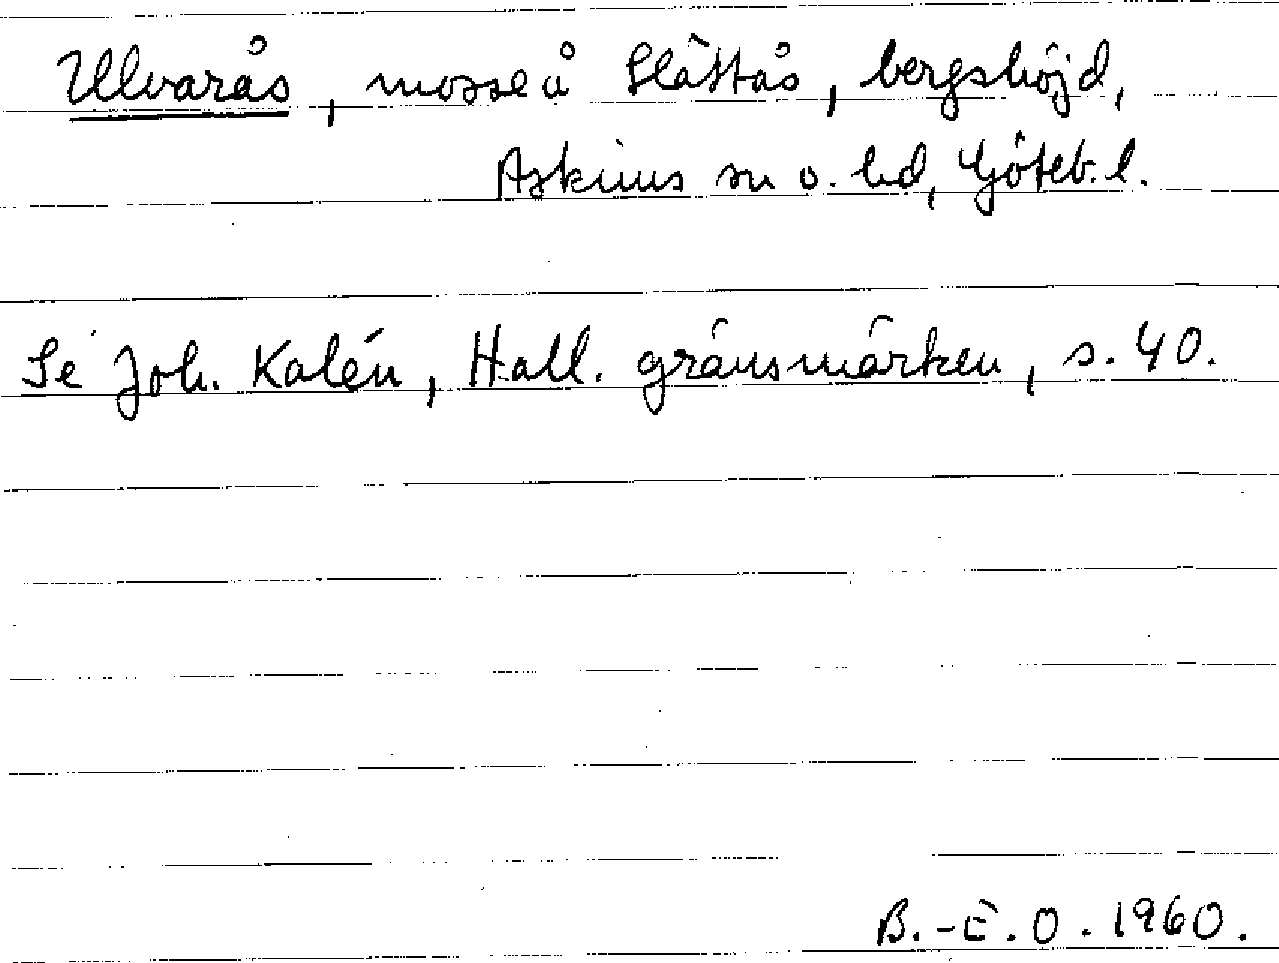 Ulvarås, mosse å Slättås, bergshöjd,
Askims sn o. hd, Göteb. l.
Se Joh. Kalén, Hall. gränsmärken, s. 40.
B.-E. O. 1960.